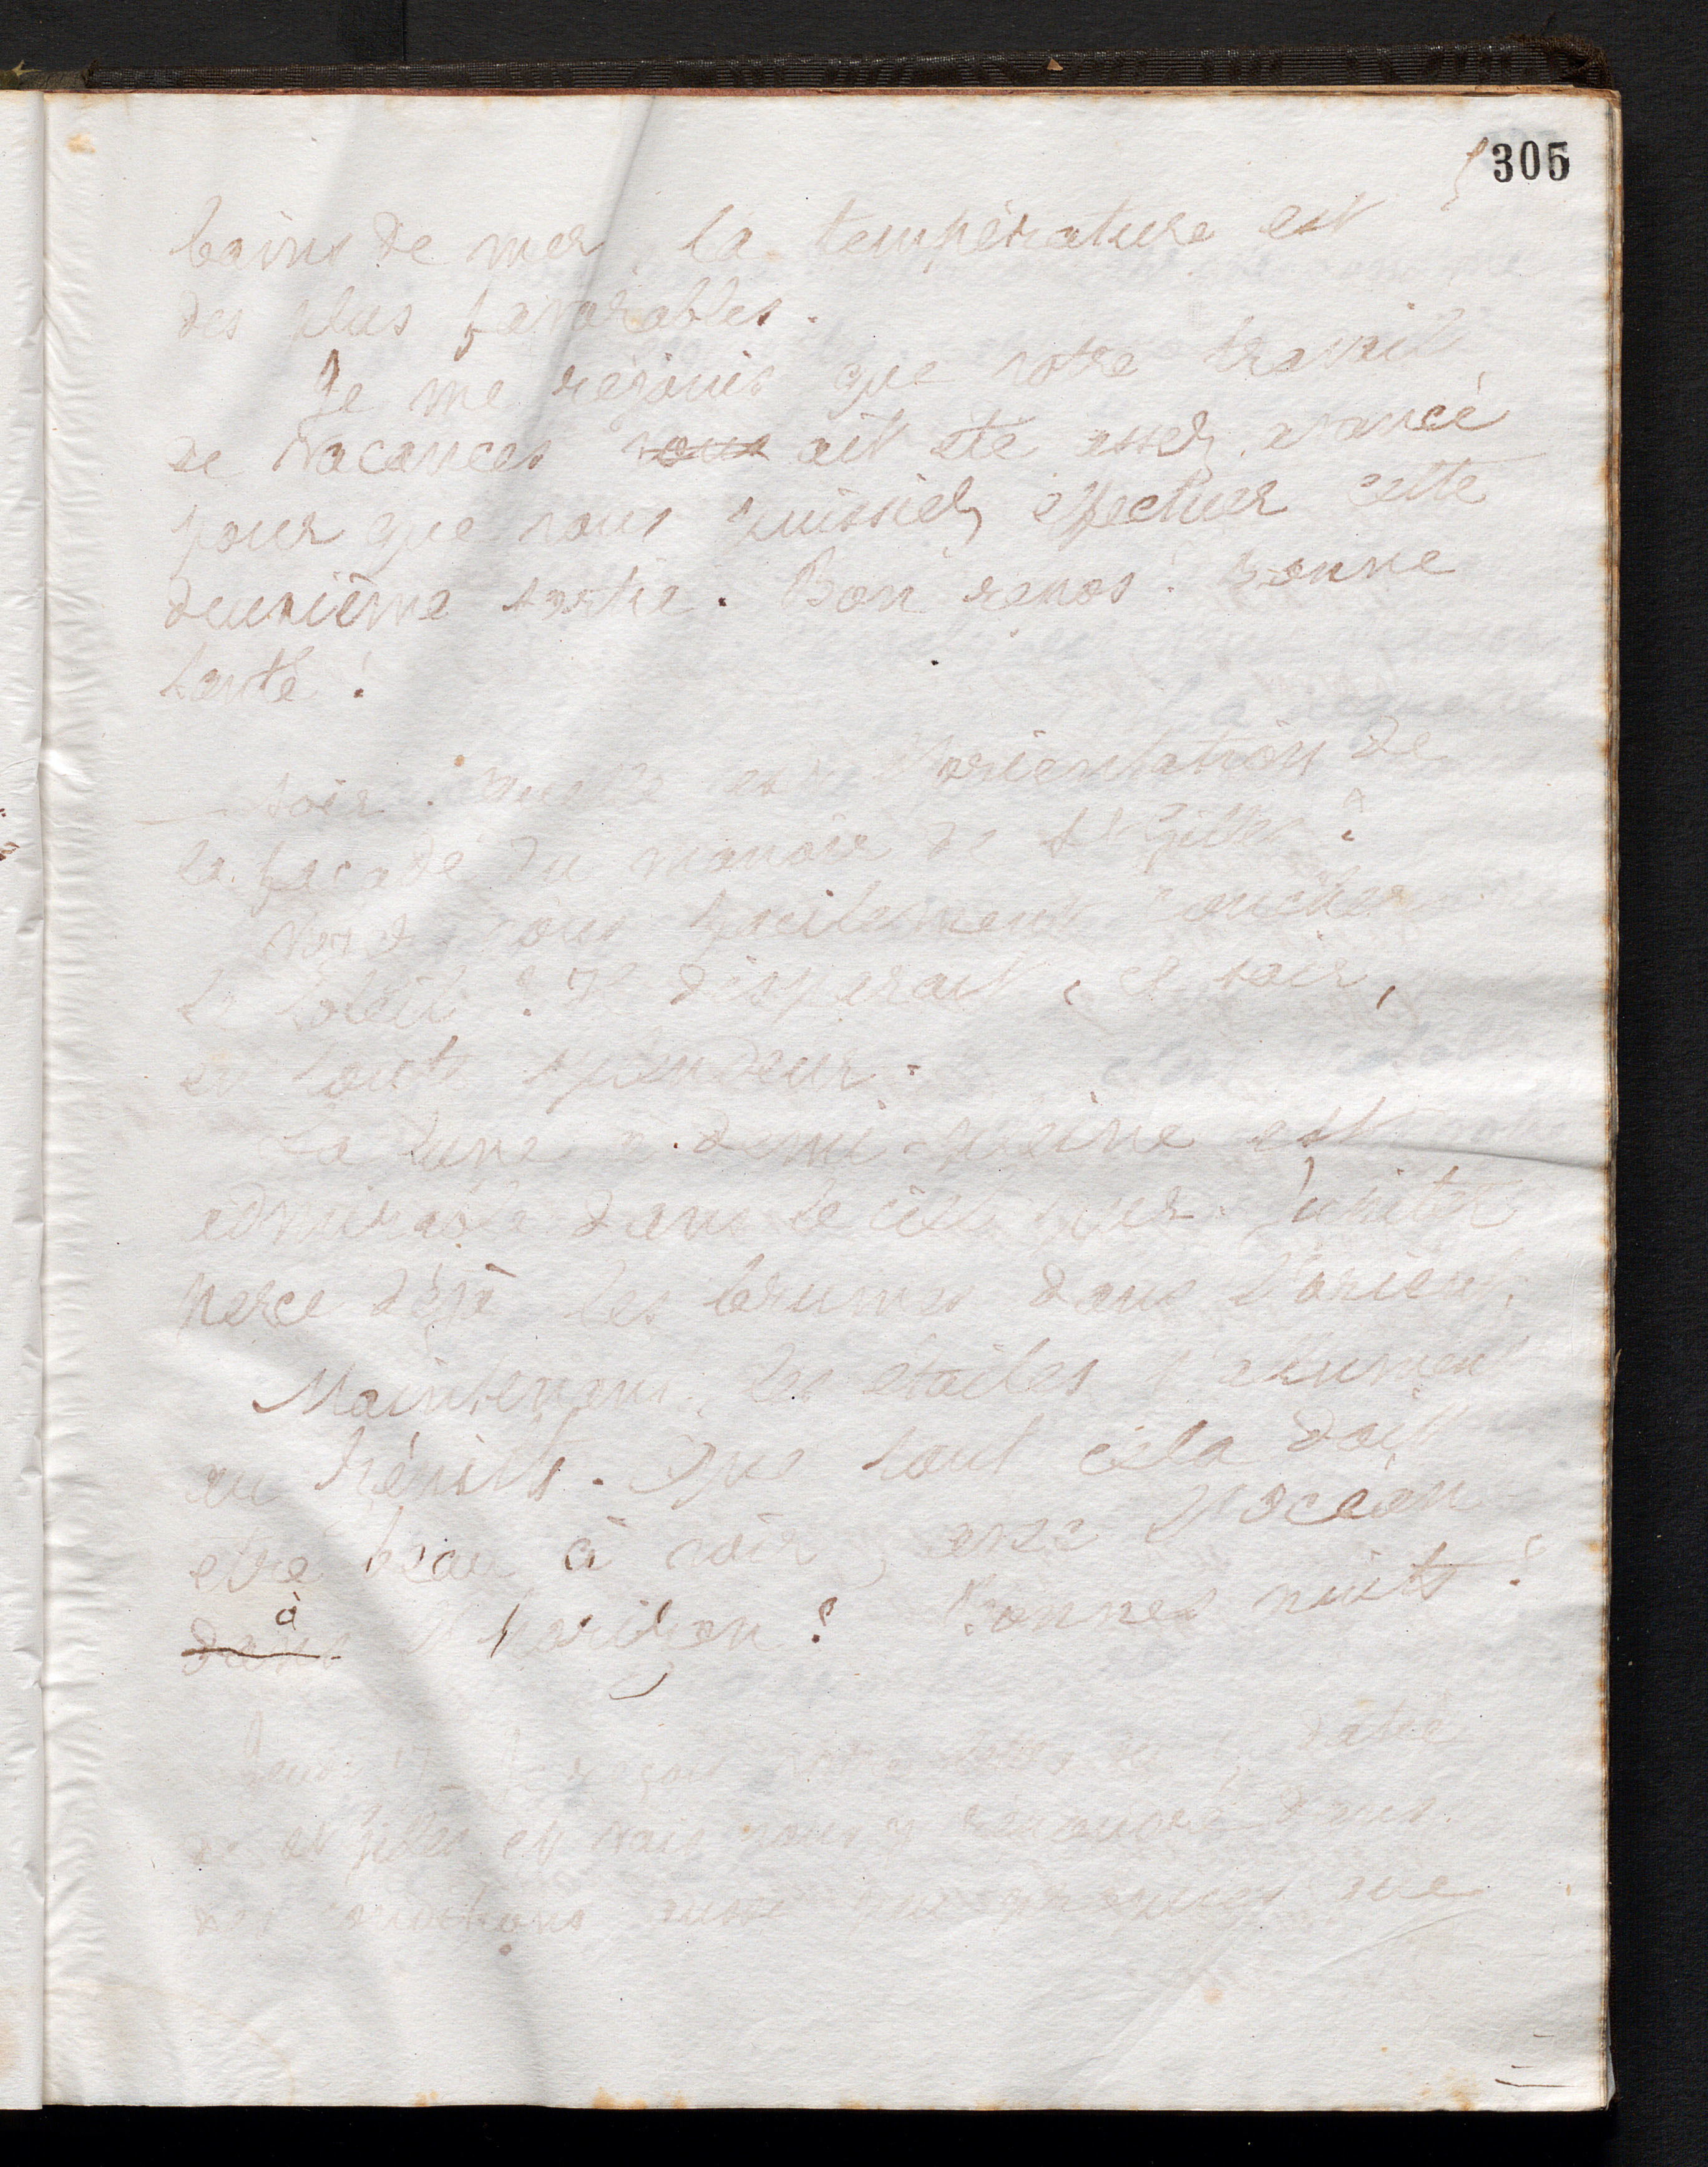 305
bains de mer, la température est
des plus favorables.
Je me réjouis que votre travail
de vacances vous ait été assez avancé
pour que vous puissiez effectuer cette
deuxième sortie. Bon repos! Bonne
santé!
soir. Quelle est l'orientation de
la façade du manoir de St Gilles?
vous facilement coucher
le soleil? Il disparait, ce soir,
en toute splendeur.
La lune à demi-pleine est
admirable dans le ciel pur. Jupiter
perce déjà les brumes dans l'orient.
Maintenant, les étoiles s'allument
au zénith. Que tout cela doit
être beau à voir, avec l'océan
à
dans l'horizon! Bonnes nuits!
Je reçois votre datée
de St Gilles et vais vous y
aussi que